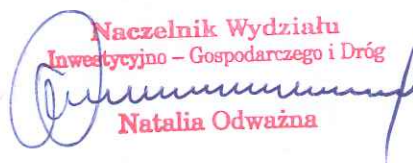 Naczelnik Wydziału
Inwestycyjno – Gospodarczego i Dróg
Natalia Odważna